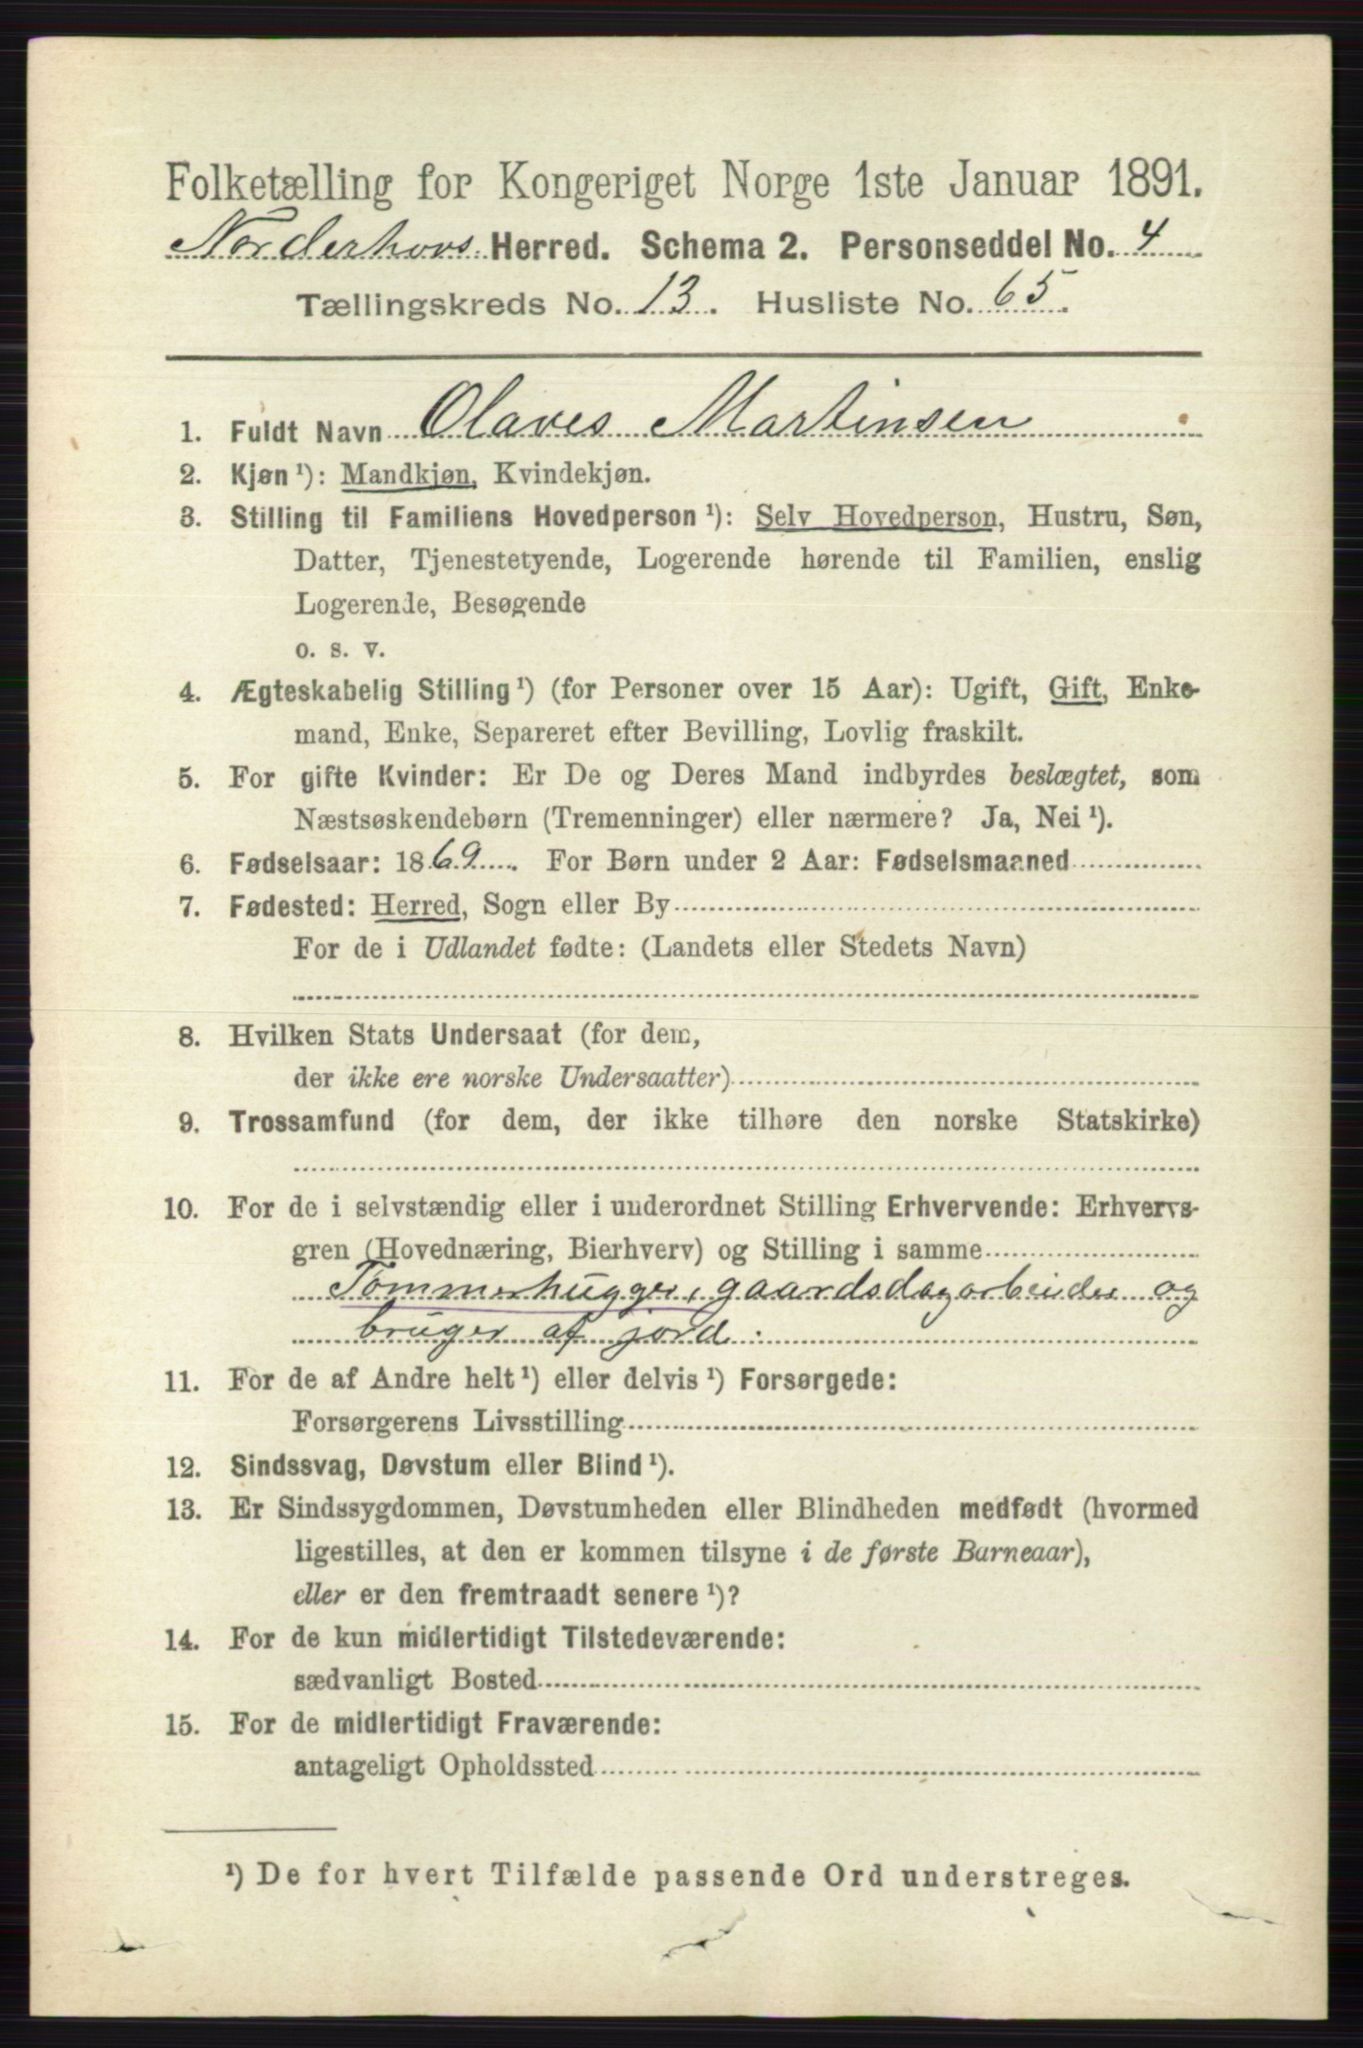 Folketælling for Kongeriget Norge 1ste Januar 1891.
Norderhovs Herred. Schema 2. Personseddel No. 4
Tællingskreds No. 13. Husliste No. 65.
1. Fuldt Navn Olaves Martinsen
2. Kjøn ¹): Mandkjøn, Kvindekjøn.
3. Stilling til Familiens Hovedperson ¹): Selv Hovedperson, Hustru, Søn,
Datter, Tjenestetyende, Logerende hørende til Familien, enslig
Logerende, Besøgende
o. s. v.
4. Ægteskabelig Stilling ¹) (for Personer over 15 Aar): Ugift, Gift, Enke-
mand, Enke, Separeret efter Bevilling, Lovlig fraskilt.
5. For gifte Kvinder: Er De og Deres Mand indbyrdes beslægtet, som
Næstsøskendebørn (Tremenninger) eller nærmere? Ja, Nei ¹).
6. Fødselsaar: 1869. For Børn under 2 Aar: Fødselsmaaned
7. Fødested: Herred, Sogn eller By
For de i Udlandet fødte: (Landets eller Stedets Navn)
8. Hvilken Stats Undersaat (for dem,
der ikke ere norske Undersaatter)
9. Trossamfund (for dem, der ikke tilhøre den norske Statskirke)
10. For de i selvstændig eller i underordnet Stilling Erhvervende: Erhvervs-
gren (Hovednæring, Bierhverv) og Stilling i samme
Tømmerhugger, gaardsdagarbeider og
bruger af jord.
11. For de af Andre helt ¹) eller delvis ¹) Forsørgede:
Forsørgerens Livsstilling
12. Sindssvag, Døvstum eller Blind ¹).
13. Er Sindssygdommen, Døvstumheden eller Blindheden medfødt (hvormed
ligestilles, at den er kommen tilsyne i de første Barneaar),
eller er den fremtraadt senere ¹)?
14. For de kun midlertidigt Tilstedeværende:
sædvanligt Bosted
15. For de midlertidigt Fraværende:
antageligt Opholdssted
¹) De for hvert Tilfælde passende Ord understreges.